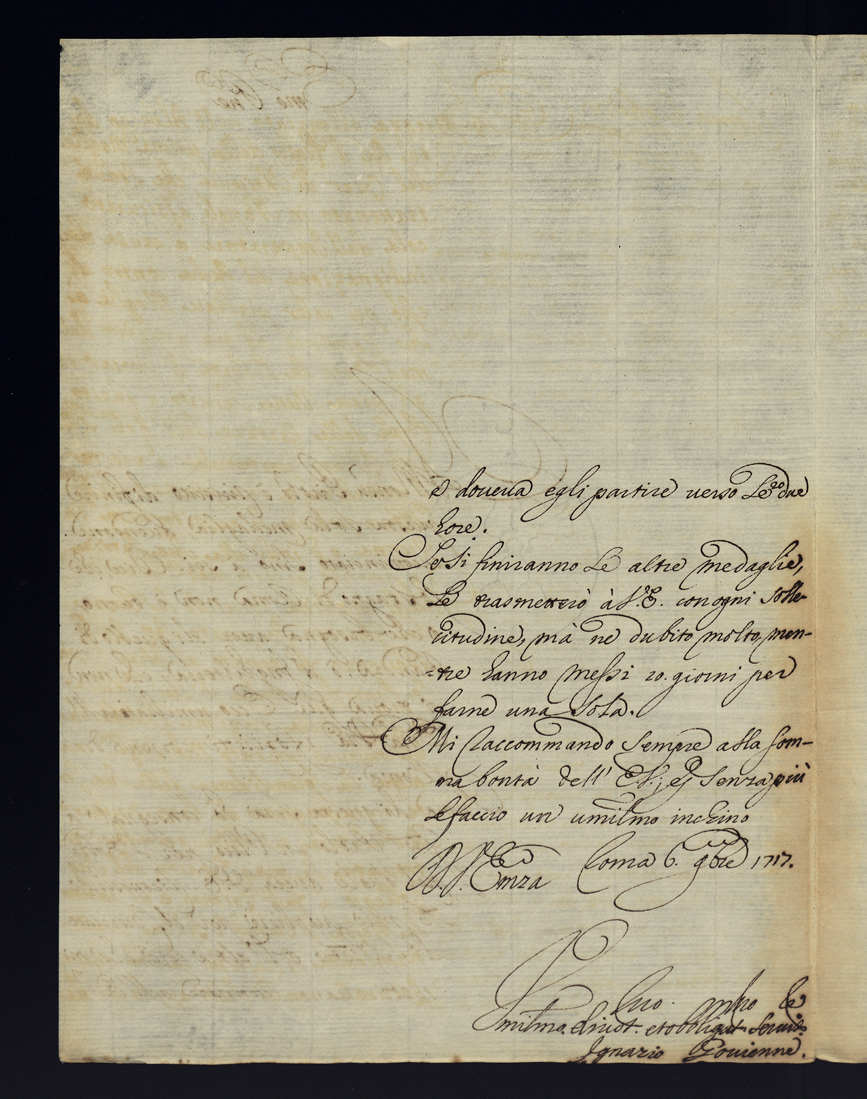 e doueua egli partire verso Le due
hore.
Se si finiranno Le altre medaglie,
Le trasmetterò à V.E. con ogni solle-
citudine, mà ne dubito molto, men-
-tre hanno messi 20. giorni per
farne una sola.
Mi raccommando sempre alla som-
ma bontà dell' E.V.; e senza più
Le faccio un umilmo inchino
D.V. Emza Roma 6. 9bre 1717.
Umilmo. diuot. et obbligat. Seruit.
Ignazio